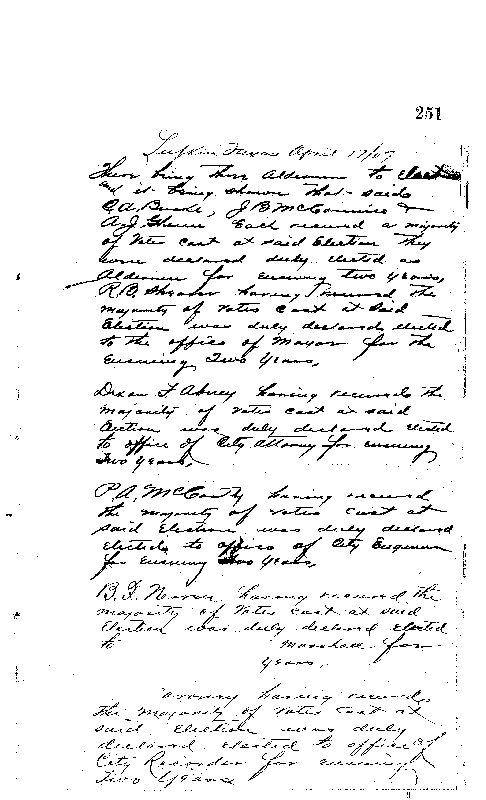 251
Lufkin Texas April 17/07
There being three Aldermen to elect
and it being shown that said
C.A. Burke, J B McConnico &
A.J. Glenn Each received a majority
of votes cast at said Election they
were declared duly elected as
Aldermen for ensuing two years,
R.B. Shearer having received the
majority of votes cast at said
Election was duly declared elected
to the office of Mayor for the
Ensuing Two years,
having received the
majority of votes cast at said
Election was duly declared elected
to office of City Attorney for ensuing
Two years,
P.A. McCarthy having received
the majority of votes cast at
said Election was duly declared
elected to office of City Engineer
for Ensuing Two years,
having received the
majority of votes cast at said
Election was duly declared elected
to Marshall for
years,
having received
the majority of votes cast at
said Election was duly
declared elected to office of
City Recorder for ensuing
Two years